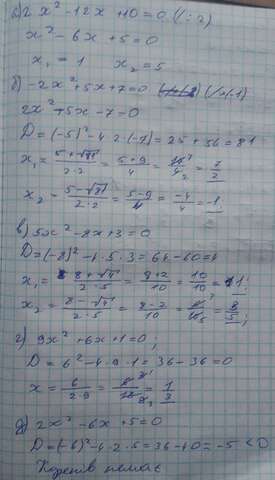 а) 2x² - 12x + 10 = 0 (/:2)
x² - 6x + 5 = 0
x₁ = 1 x₂ = 5
б) -2x² + 5x + 7 = 0 (/×(-1)
2x² + 5x - 7 = 0
D = (-5)² - 4·2·(-7) = 25 + 56 = 81
x₁ = (5 + √81)/(2·2) = (5 + 9)/4 = 14/4 = 7/2
x₂ = (5 - √81)/(2·2) = (5 - 9)/4 = -4/4 = -1
в) 5x² - 8x + 3 = 0
D = (-8)² - 4·5·3 = 64 - 60 = 4
x₁ = (8 + √4)/(2·5) = (8 + 2)/10 = 10/10 = 1;
x₂ = (8 - √4)/(2·5) = (8 - 2)/10 =
г) 9x² + 6x + 1 = 0;
D = 6² - 4·9·1 = 36 - 36 = 0
x = 6/(2·9) = 6/18 = 1/3
д) 2x² - 6x + 5 = 0
D = (-6)² - 4·2·5 = 36 - 40 = -5 < 0
Коренів немає